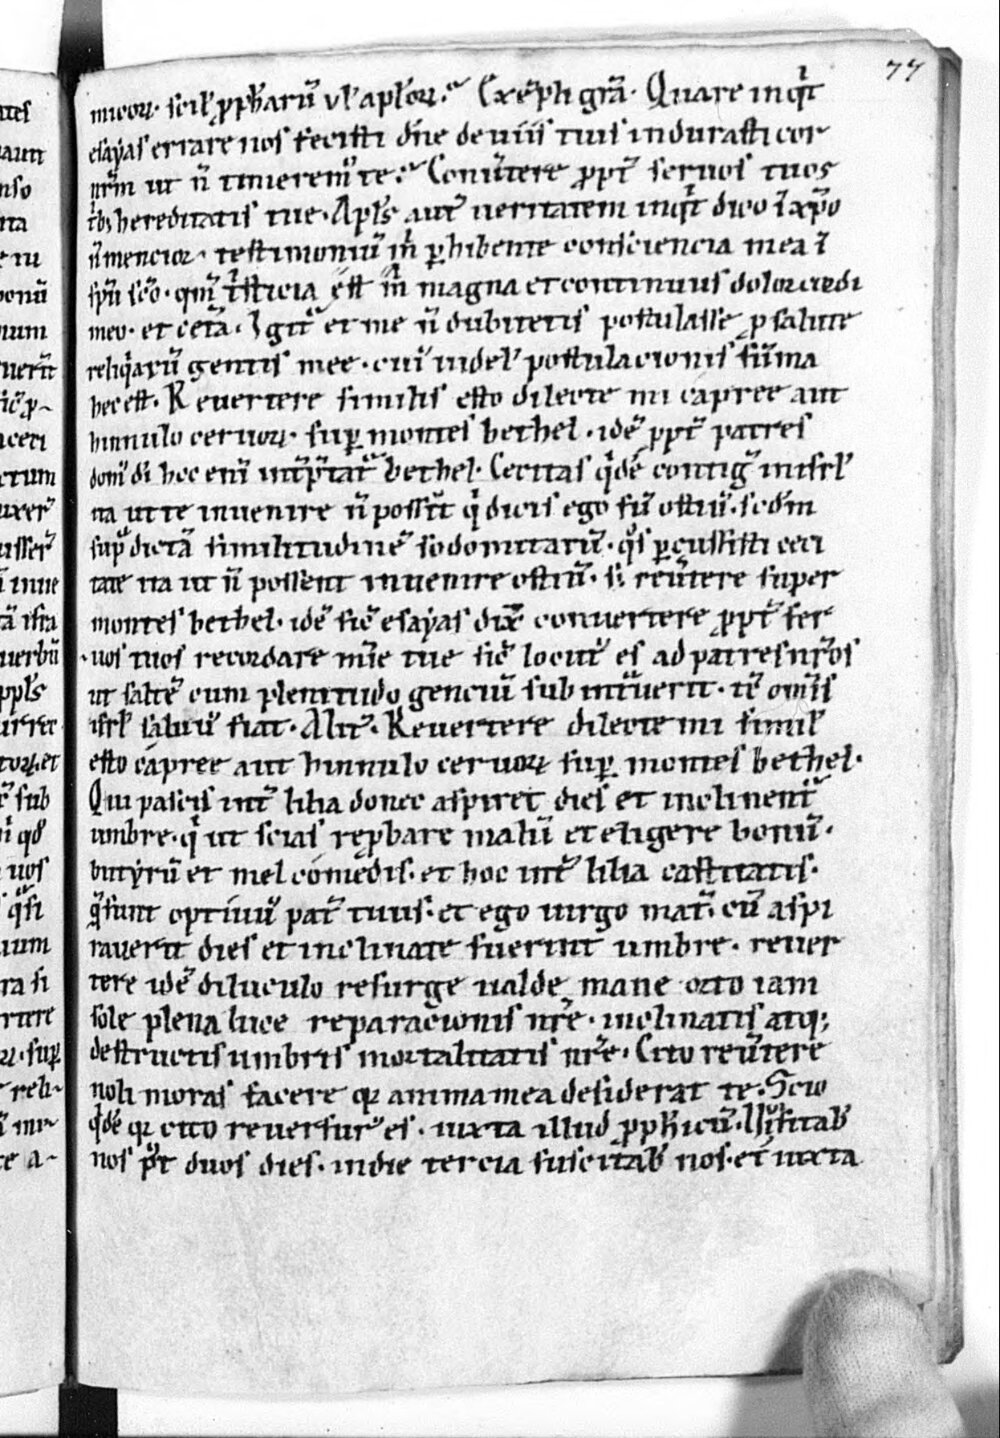 77
micoꝝ· scil̛ ꝓph̄arū vl̛ apl̛oꝝ· Exēpli grā· Quare inqͥt
esayas errare nos fecisti dn̄e de uiis tuis indurasti cor
nr̄m ut n̄ timerem᷒ te· Conūtere ꝓpt̄ seruos tuos
tͥbꝫ hereditatis tue· Apl̄s aut̄ ueritatem inqͥt dico ī xp̄o
n̄ mencior· testimoniū m̄ ꝑhibente consciencia mea ī
spū scō· qm̄ tͥsticia ē͛ m̄ magna et continuus dolor cordi
meo· et cetā· Igit̄ et me n̄ dubitetis postulasse ꝓ salute
reliqͥarū gentis mee· cui᷒ uidel̛ postulacionis sūma
hec est· Reuertere similis esto dilecte mi capree aut
hinnulo ceruoꝝ· suꝑ montes bethel· idē ꝓpt̄ patres
dom᷒ dī hoc enī int̄p̄tat̄ bethel· Cecitas qͥdē contigͭ in isrl̛
ita ut te inuenire n̄ possīt qͥ dicis ego sū ostiū· scdm̄
supͣdictā similitudinē sodomitarū· qͦs ꝑcussisti ceci
tate ita ut n̄ possent inuenire ostiū· s; reūtere super
montes bethel· idē sic̄ esayas dix̄ conuertere ꝓpt̄ ser
uos tuos recordare mīe tue sic̄ locut᷒ es ad patres nr̄os
ut saltē cum plenitudo genciū subint̄uerit· tc̄ om̄is
isrl̛ saluus fiat· Alit̄· Reuertere dilecte mi simil̛
esto capree aut hinnulo ceruoꝝ suꝑ montes bethel·
Qui pascis int̄ lilia donec aspiret dies et inclinent̄
umbre· qͥ ut scias reꝓbare malū et eligere bonū·
butyrū et mel comedis· et hoc int̄ lilia castitatis·
q̄ sunt optim᷒ pat̄ tuus· et ego uirgo mat̄· cū aspi
rauerit dies et inclinate fuerint umbre· reuer
tere idē diluculo resurge ualde mane orto iam
sole plena luce reparacionis nr̄e· inclinatis atqꝫ
destructis umbris mortalitatis nr̄e· Cito reūtere
noli moras facere qꝛ anima mea desiderat te· Scio
qͥdē qꝛ cito reuersur᷒ es· iuxta illud ꝓph̄icū· Uiuificab̛
nos p᷒t duos dies· in die tercia suscitab̛ nos· et iuxta